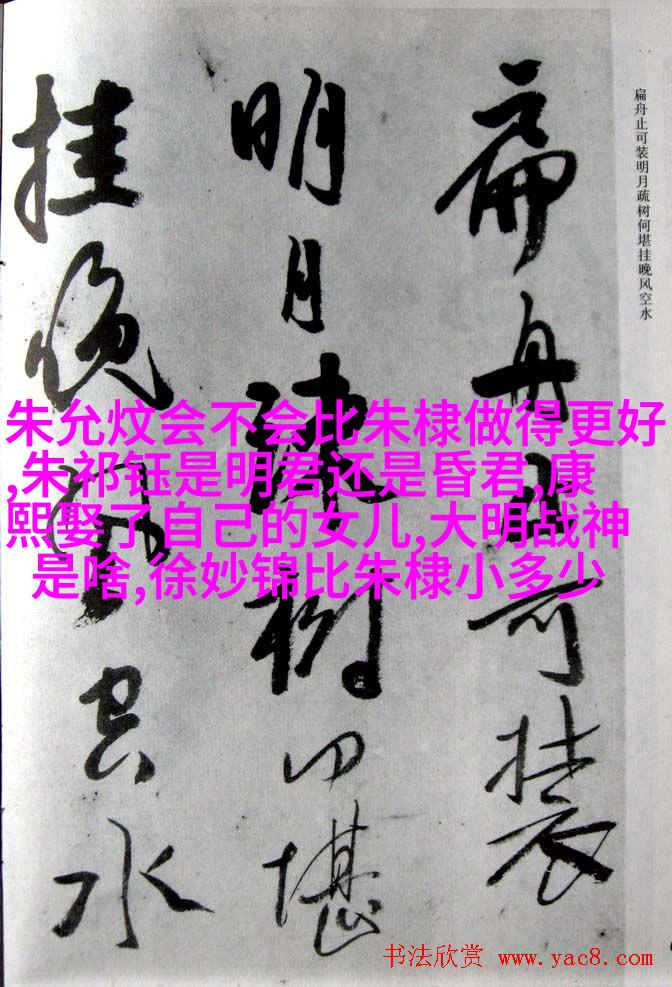 扁舟止可装明月疏树何堪挂晚风空水
扁舟止可装
明月疏树何堪
挂晚风空水
朱允炆会不会比朱棣做得更好
,朱祁钰是明君还是昏君,康
熙娶了自己的女儿,大明战神
是啥,徐妙锦比朱棣小多少
书法欣赏 www.yac8.com